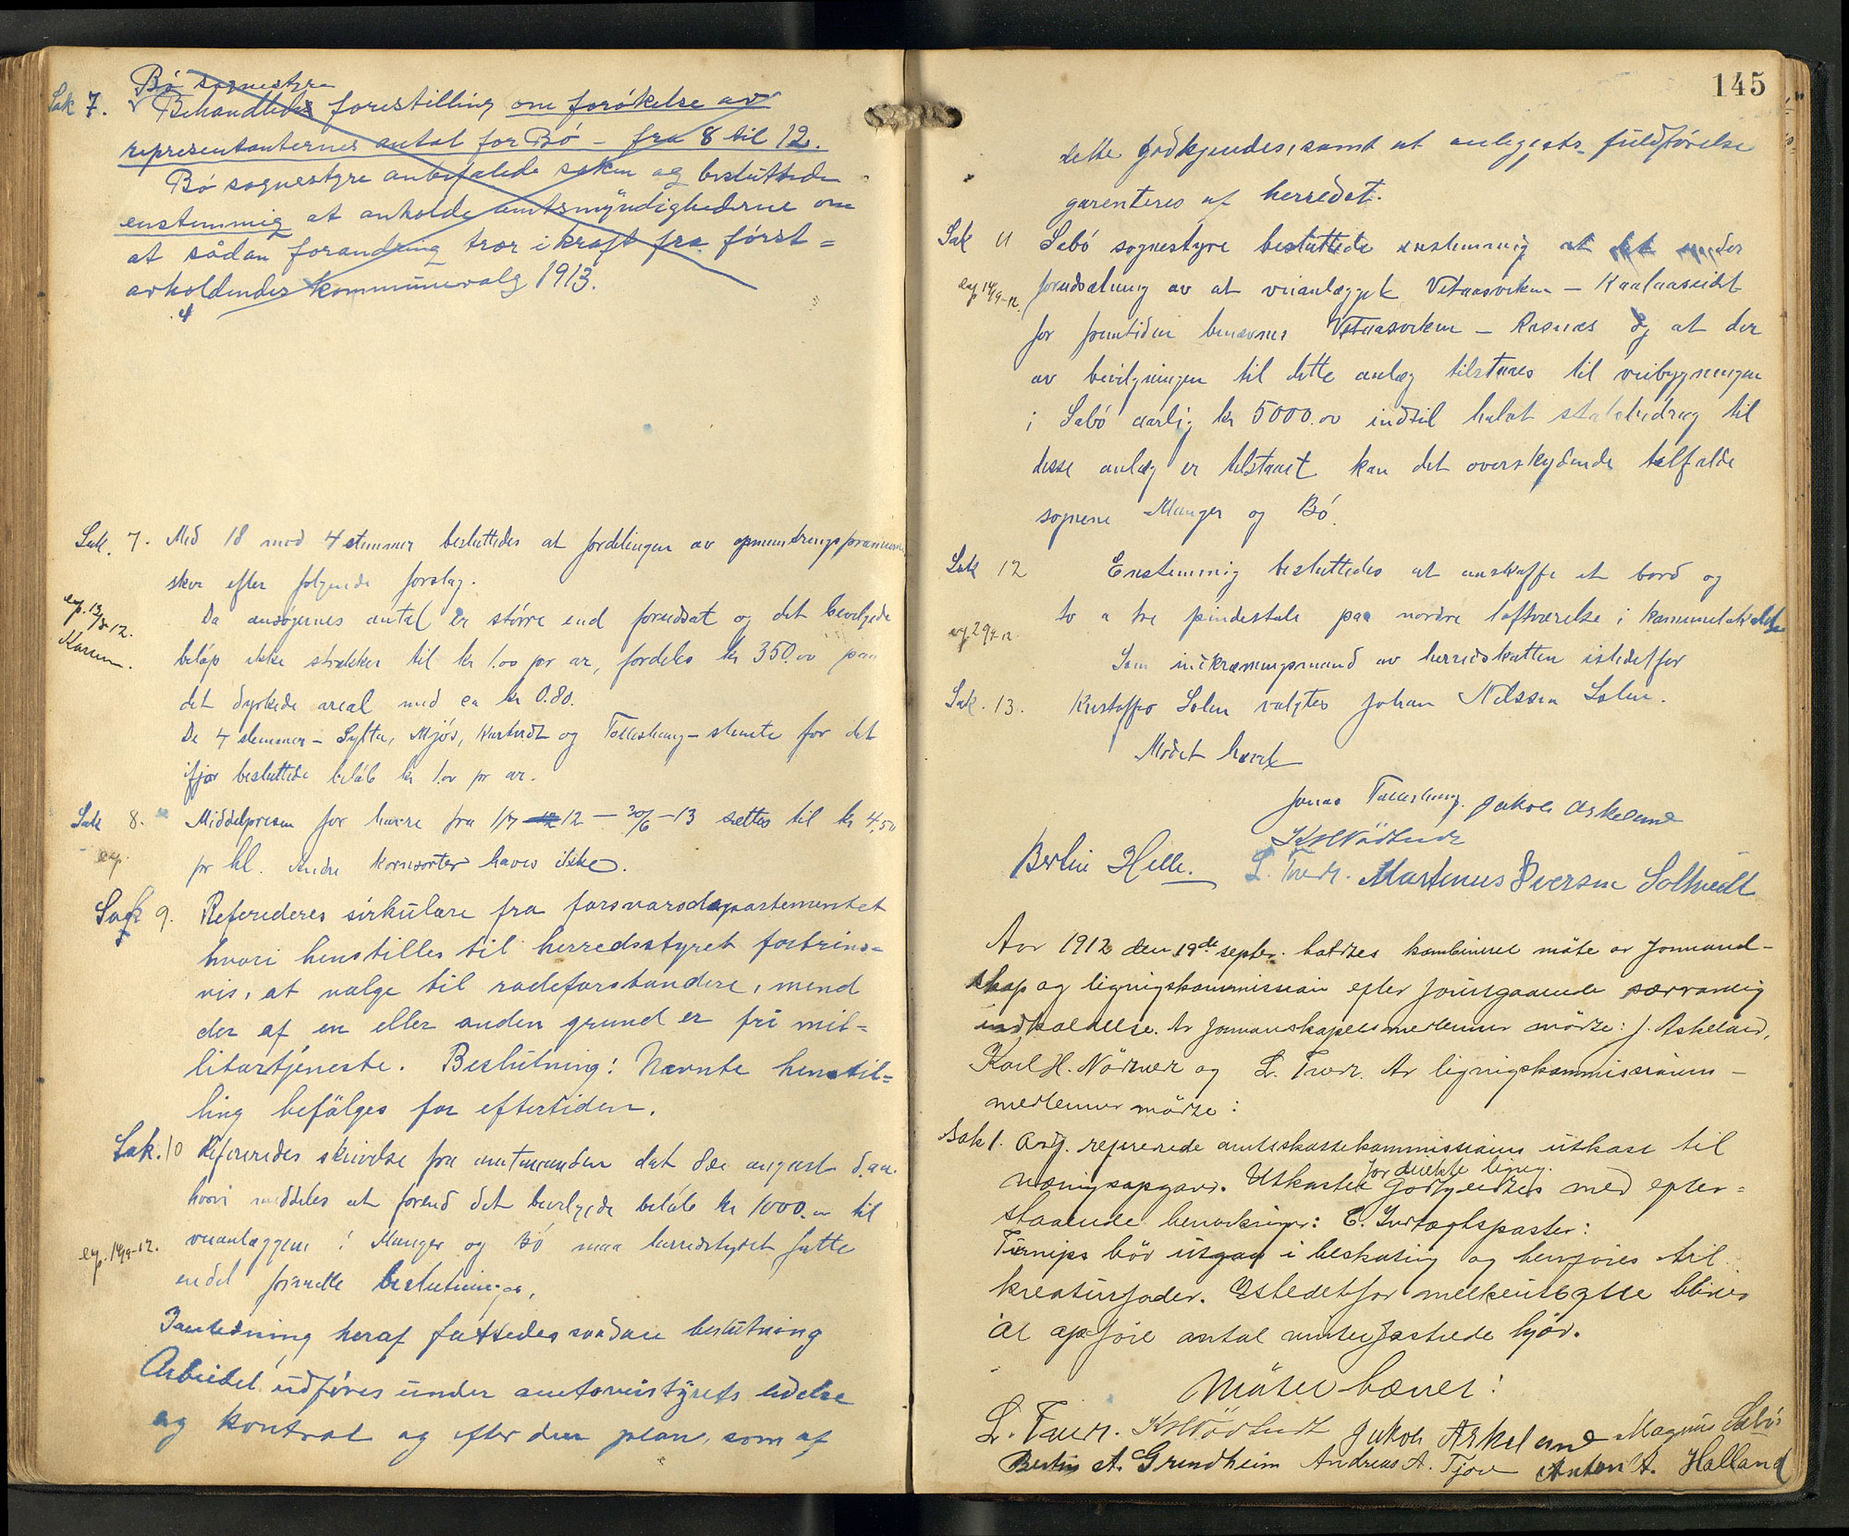 Bö sognestyre
Sak 7. Behandledes forestilling om forökelse av
representanternes antal for Bö - fra 8 til 12.
Bö sognestyre anbefalede saken og besluttede
enstemmig at anholde amtsmyndighederne om
at sådan forandring træer i kraft fra först=
avholdendes kommunevalg 1913.
Sak. 7. Med 18 mod 4 stemmer besluttedes at fordelingen av opmuntringspræmien
sker efter følgende forslag.
ep. 13/8-12. Da ansøgernes antal er større end forudsat og det bevilgede
beløp ikke strekker til kr 1.00 pr ar, fordeles kr 350.00 paa
det dyrkede areal med ca kr 0.80.
De 4 stemmer - Sylta, Mjös, Kartveit og Toleshaug - stemte for det
ifjor besluttede beløb kr 1.00 pr ar.
Sak 8. Middelprisen for havre fra 1/7 12 - 30/6 - 13 sættes til kr 4,50
ep. pr hl. Andre kornsorter haves ikke.
Sak 9. Refereredes sirkulære fra forsvarsdepartementet
hvori henstilles til herredsstyret fortrins=
vis, at valge til rodeforstandere, mænd
der af en eller anden grund er fri mil=
litærtjeneste. Beslutning: Nævnte henstil=
ling befölges for eftertiden.
Sak. 10 Refereredes skrivelse fra amtmanden dat 8de august d.aa.
hvori meddeles at forend det bevilgede beløb kr 1000.00 til
veianlæggene i Manger og Bö maa herredstyret fatte
ep. 14/9-12. endel formelle beslutninger,
I anledning heraf fattedes saadan beslutning
Arbeidet udföres under amtsveistyrets ledelse
og kontrol og efter den plan, som af
145
dette godkjendes, samt at anlægets fuldförelse
garenteres af herredet.
Sak 11 Sæbö sognestyre besluttede enstemmig at under
ep 14/9-12. forudsætning av at veianlægget Vetaasviken - Kaalaaseidet
for fremtiden benævnes Vetaasviken - Rosnes og at der
av bevilgningen til dette anlæg tilstaaes til veibygningen
i Sæbö aarlig kr 5000.00 indtil halvt statsbidrag til
disse anlæg er tilstaaet kan det overskydende tilfalde
sognene Manger og Bö.
Sak 12 Enstemmig besluttedes at anskaffe et bord og
to a tre pindestole paa nordre loftværelse i kommunelokalet
Som indkrævningsmand av herredskatten istedetfor
Sak. 13. Kristoffer Solen valgtes Johan Nilssen Solen.
Mödet hævet
Jonas Toleshaug. Jakob Askeland
K H Nödtvedt
Bertin Helle. L. Tveit. Martinus Iversen Soltvedt
Aar 1912 den 19de septbr. holdtes kombineret möte av formand-
skap og ligningskommission efter forutgaaende særvanlig
indkaldelse. Av formandskapetsmedlemmer mötte: J. Askeland,
Karl H. Nödtvedt og L. Tveit. Av ligningskommissionens -
medlemmer mötte:
Sak 1. Ordf. refererede amtsskattekommissionens utkast til
for direkte lign.
næringsopgave. Utkastet godkjendtes med efter=
staaende bemerkninger: C. Indtægtsposter:
Turnips bör utgaa i beskatning og henföres til
kreaturfoder. Istedetfor melkeutbytte blir
at opföre antal vinterfostrede kjör.
Mötet hævet:
L. Tveit. K H Nödtvedt Jakob Askeland Magnus Sæbö
Bertin A. Grindheim Andreas A. Tjore Anton A. Halland